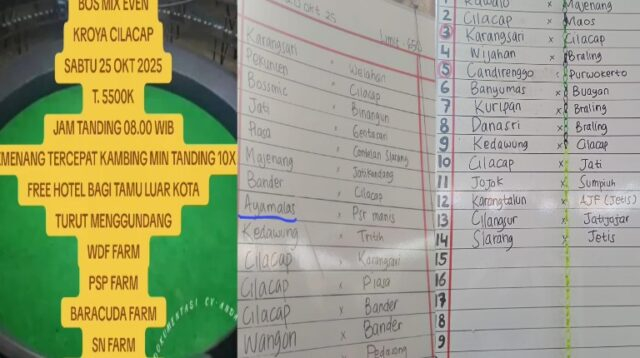 BOS MIX EVEN
KROYA CILACAP
SABTU 25 OKT 2025
T. 5500K
JAM TANDING 08.00 WIB
EMENANG TERCEPAT KAMBING MIN TANDING 10X
FREE HOTEL BAGI TAMU LUAR KOTA
TURUT MENGGUNDANG
WDF FARM
PSP FARM
BARACUDA FARM
SN FARM
OKT 25
Limit
Karangsari x Welahan
Pekunien x Cilacap
Bossmic x Binangun
Jati x Gentasari
Plasa x Combelan Slarang
Majenang x Jatikandang
Bander x Cilacap
Ayamalas x Psr manis
Kedawung x Tritih
Cilacap x Karangsari
Cilacap x Plasa
Cilacap x Bander
Wangon x Bander
1 Rawalo x Majenang
2 Cilacap x Maos
3 Karangsari x Cilacap
4 Wijahan x Braling
5 Candirenggo x Purwokerto
6 Banyumas x Buayan
7 Kuripan x Braling
8 Danasri x Braling
9 Kedawung x Cilacap
10 Cilacap x Jati
11 Jojok x Sumpiuh
12 Karangtalun x AJF (Jetis)
13 Cilangsur x Jatijajar
14 Slarang x Jetis
15
16
17
18
9